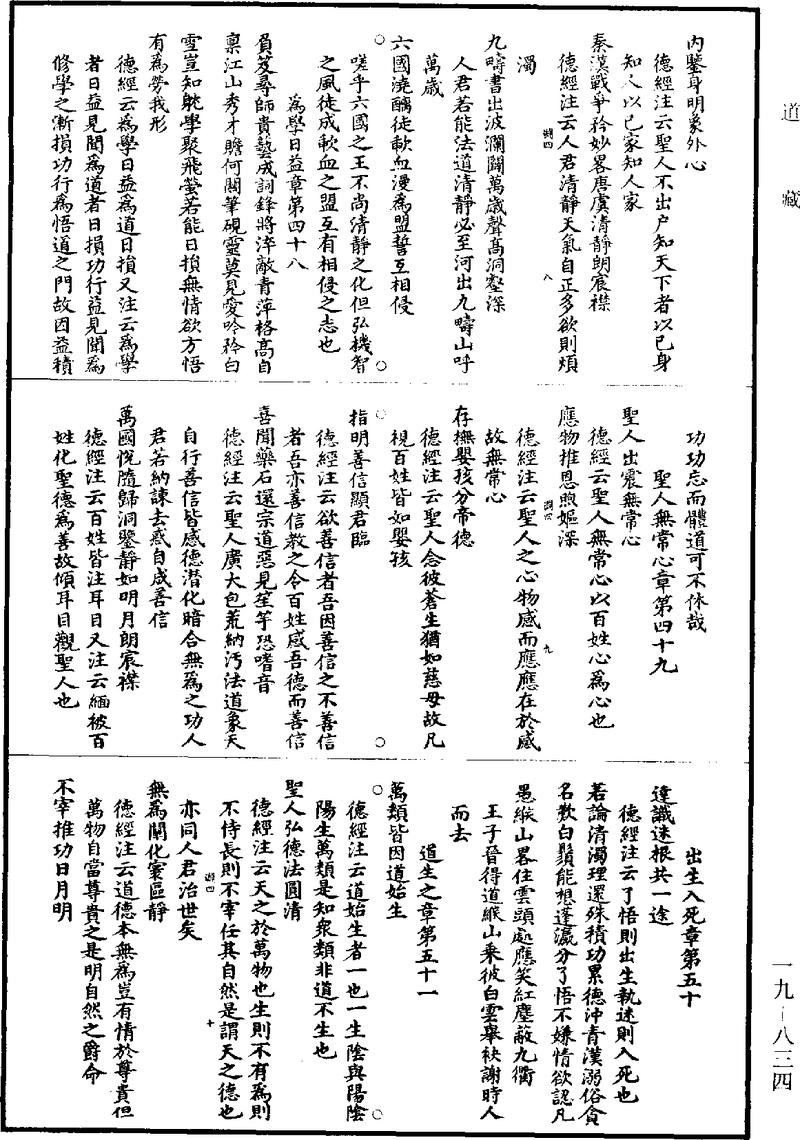 道藏
內鑒身明象外心
德經注云聖人不出户知天下者以己身
知人以己家知人家
秦漢戰爭矜妙畧唐虞清靜朗宸襟
德經注云人君清靜天氣自正多欲則煩
濁
九疇書出波瀾闊萬歲聲高洞壑深
人君若能法道清靜必至河出九疇山呼
萬歲
六國澆醨徒歃血漫為盟誓互相侵
嗟乎六國之王不尚清靜之化但弘機智
之風徒成歃血之盟互有相侵之志也
為學日益章第四十八
負笈尋師貴藝成詞鋒將淬敵青萍格高自
稟江山秀才贍何關筆硯靈莫見愛吟矜白
雪豈知躭學聚飛螢若能日損無情欲方悟
有為勞我形
德經云為學日益為道日損又注云為學
者日益見聞為道者日損功行益見聞為
修學之漸損功行為悟道之門故因益積
功功忘而體道可不休哉
聖人無常心章第四十九
聖人出震無常心
德經云聖人無常心以百姓心為心也
應物推恩煦嫗深
德經注云聖人之心物感而應應在於感
故無常心
存撫嬰孩分帝德
德經注云聖人念彼蒼生猶如慈母故凡
視百姓皆如嬰孩
指明善信顯君臨
德經注云欲善信者吾因善信之不善信
者吾亦善信教之令百姓感吾德而善信
喜聞藥石還宗道惡見笙竽恐嗜音
德經注云聖人廣大包荒納污法道象天
自行善信皆感德潛化暗合無為之功人
君若納諫去惑自成善信
萬國悅隨歸洞鑒靜如明月朗宸襟
德經注云百姓皆注耳目又注云緬被百
姓化聖德為善故傾耳目觀聖人也
出生入死章第五十
達識迷根共一途
德經注云了悟則出生執迷則入死也
若論清濁理還殊積功累德沖青漢溺俗貪
名歎白鬚能想蓬瀛分了悟不嫌情欲認凡
愚緱山畧住雲頭處應笑紅塵蔽九衢
王子晉得道緱山乘彼白雲舉袂謝時人
而去
道生之章第五十一
萬類皆因道始生
德經注云道始生者一也一生陰與陽陰
陽生萬類是知衆類非道不生也
聖人弘德法圓清
德經注云天之於萬物也生則不有為則
不恃長則不宰任其自然是謂天之德也
亦同人君治世矣
無為闡化寰區靜
德經注云道德本無為豈有情於尊貴但
萬物自當尊貴之是明自然之爵命
不宰推功日月明
一九-八三四